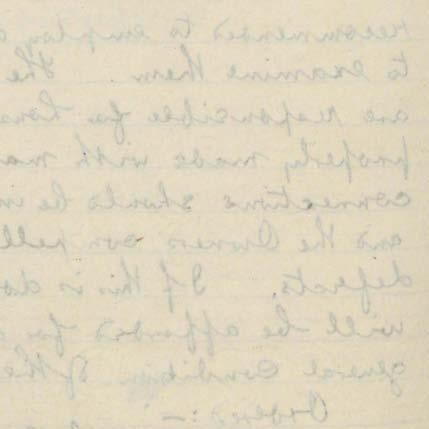 recommended to employ a
to examine them. The
are responsible for
properly made with ma
connections should be in
and the Owners own
defects. If this is do
will be afforded for
general condition of the
Orders :-